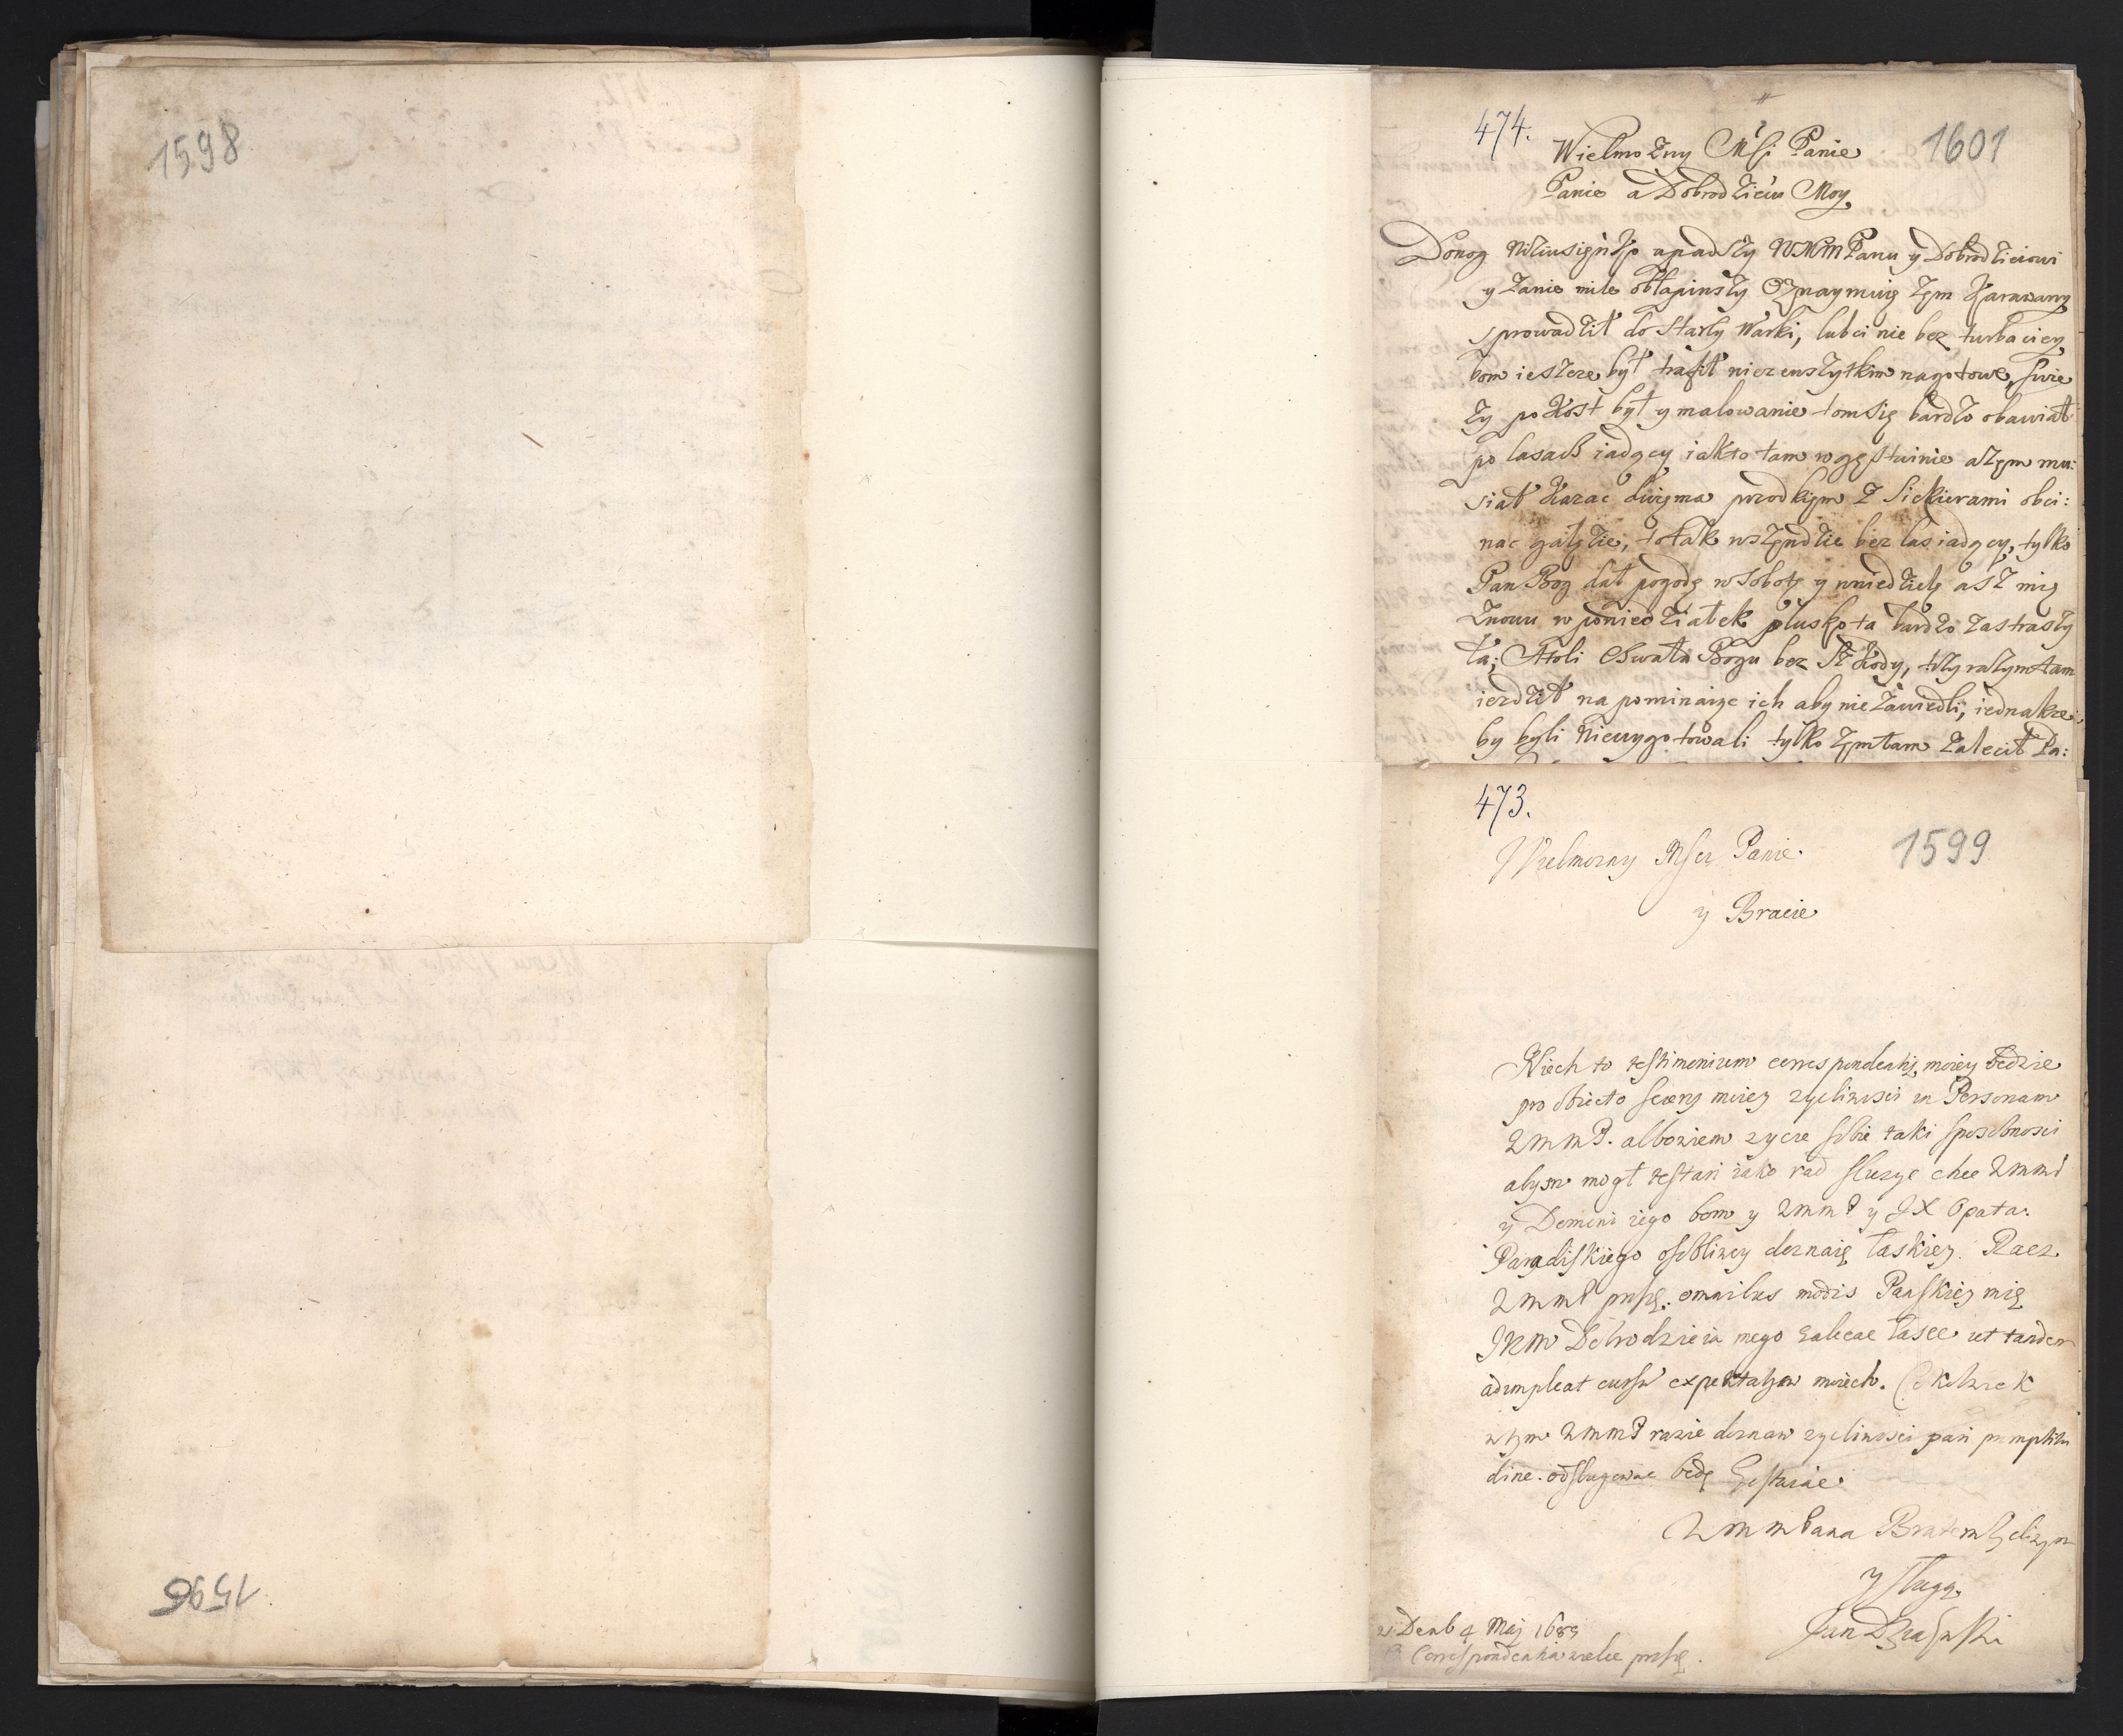 1598
1596
474.
1601
Wielmożny Mśi Panie
Panie a Dobrodzieiu Moy
Donog upadszy WMMPanu y Dobrodzieiowi
y zanie mile obłapiwszy Oznaymuię żem karawany
sprowadził do starsy Warki, lubci nie bez turbaciey
bom ieszcze był trafił niezewszytkim nagotowe, swie
ży pokost był y malowanie tomsię bardzo obawiał
po lasach iadący iakto tam wgęstwinie ażem mu:
siał kazac dwiema przodkiem z siekierami obci:
nac gałęzie, totak wszendzie bez las iadący, tylko
Pan Bog dał pogodę wsobotę y wniedzielę asz mię
znowu wponiedziałek pluskota bardzo zastraszy
ła; Atoli Chwała Bogu bez szkody, trzy razymtam
iezdził napominaiąc ich aby niezawiedli, iednakze
by byli niewygotowali tylko żemtam zalecił Pa:
473.
1599
Wielmozny Msci Panie
y Bracie
Niech to testimonium correspondentij moiey bedzie
pro obiecto scerey moiey zycliwosci in Personam
WMMP. albowiem zycze sobie taki sposobnosci
abym mogł testari iako rad sluzyc chce WMMP
y Domini iego bom y WMMP y JX Opata
Paradiskiego osobliwey doznaię łaskiey. Racz
WMMP proszę omnibus modis Panskiey mię
JKM Dobrodzieia mego zalecac łasce ut tandem
adimpleat cursu expektatyw moich. Cokolwiek
wtym WMMP razie doznam zycliwosci pari promptitu
dine odsługowac bedę
WMMPana Bratem zycliwym
y sługą
Jan
w Denb 4 Maj 1689
Correspondentia wielce proszę.